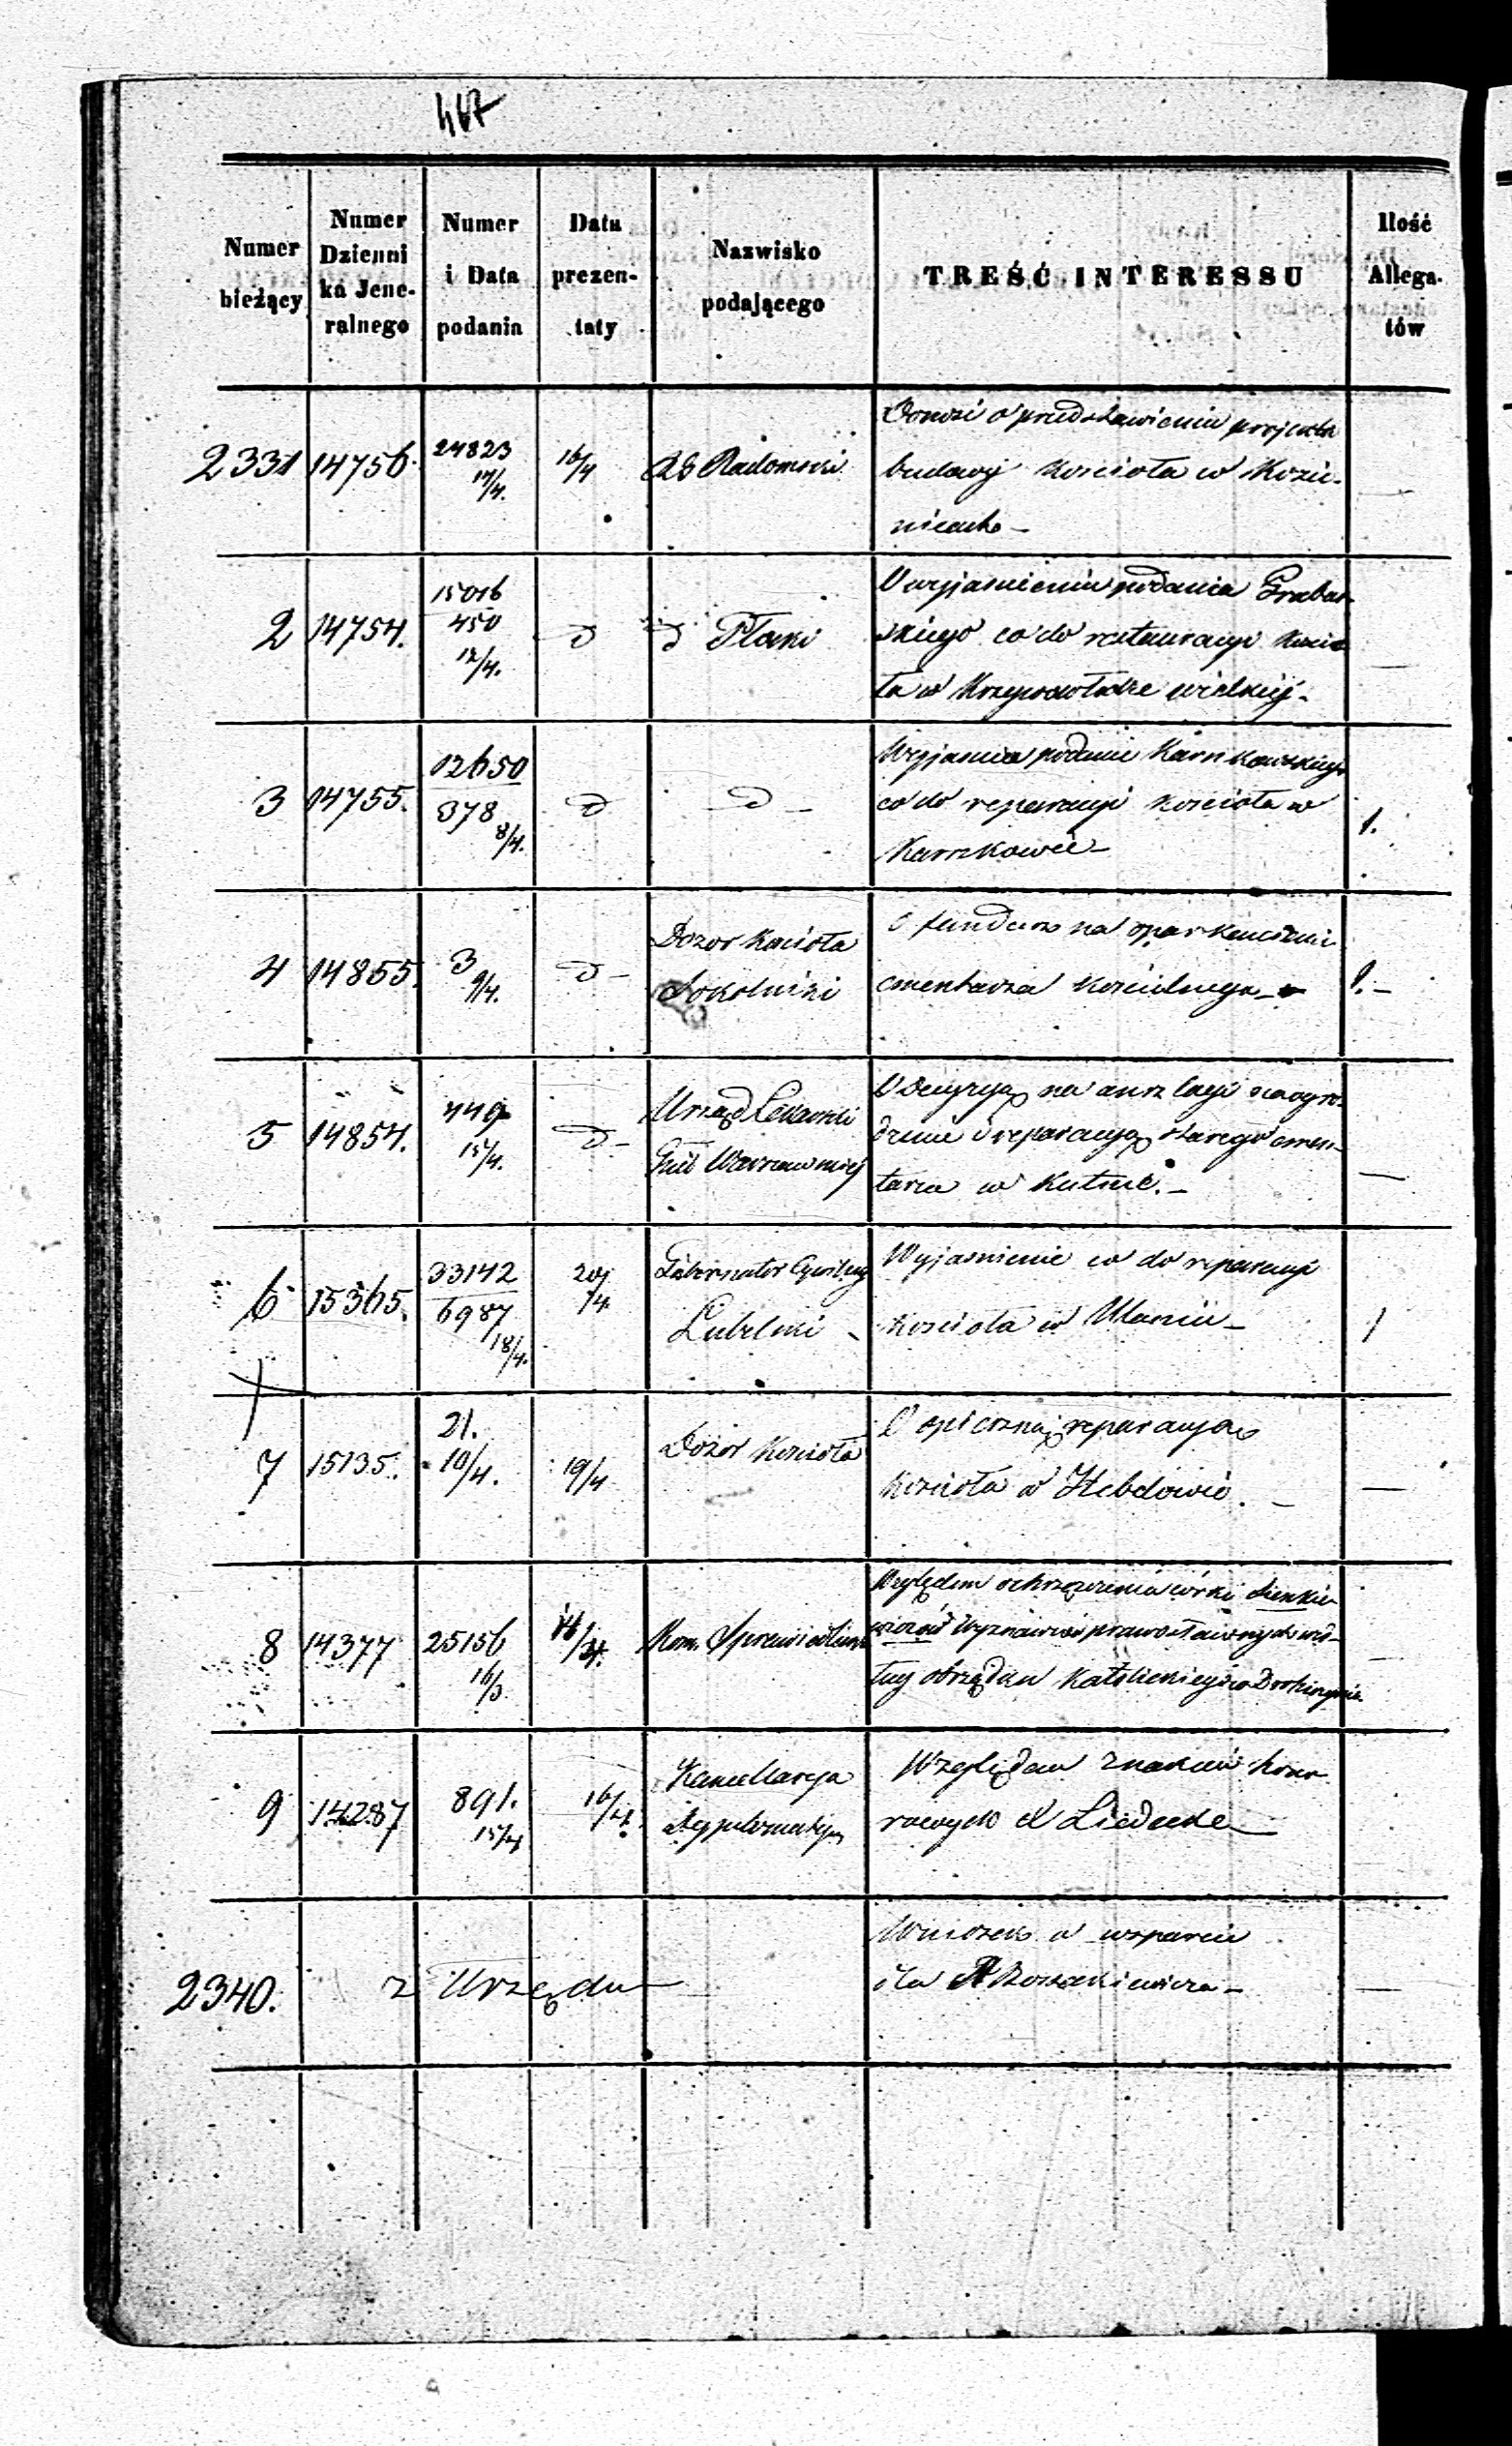 467
Numer bieżący | Numer Dziennika Jeneralnego | Numer i Data podania | Data prezentaty | Nazwisko podającego | TREŚĆ INTERESSU | Ilość Allegatów
2331 | 14756. | 24823 14/4. | 16/4 | RG Radomski | Donosi o przedstawieniu projektu
budowy Kościoła w Kozie-
nicach –
2 | 14754. | 15016 450 12/4. | d | d Płocki | O wyjaśnieniu podania Grabow-
skiego co do restauracyi Kościo
ła w Krzynowłodze wielkiej – | —
3 | 14755. | 12650 378 8/4. | d | d – | Wyjaśnia podanie Karnkowskiego
co do reparacyi kościoła w
Karnkowie – | 1.
4 | 14855. | 3 9/4. | d – | Dozor Kościoła
Sokolnicki | O fundusz na oparkanienie
cmentarza kościelnego – | 1. –
5 | 14854. | 449 15/4. | d – | Urząd Lekarski
Gub Warszawskiej | O decyzyą na anszlagi na ogro-
dzenie i reparacyą starego cmen-
tarza w Kutnie. – | —
6 | 15365. | 33142 6987 18/4. | 20/4 | Gubernator Cywilny
Lubelski – | Wyjaśnienie co do reparacyi
Kościoła w Ulanie – | 1
7 | 15135. | 21. 10/4. | 19/4 | Dozór Kościoła | O spieszną reparacyą
Kościoła w Hebdowie. – | —
8 | 14377 | 25156 16/3. | Kom. Sprawiedliwo | Względem ochrzczenia córki Sienkie
wiczów Wyznawców prawosławnych we-
dług obrządku Katolickiego w Drohiczynie
9 | 14287 | 891. 15/4 | 16/4. | Kancellarya
Dyplomatyc | Względem znaków hono
rowych X Liedecke –
2340. | z Urzędu – | Wniosek o wsparcie
dla | —